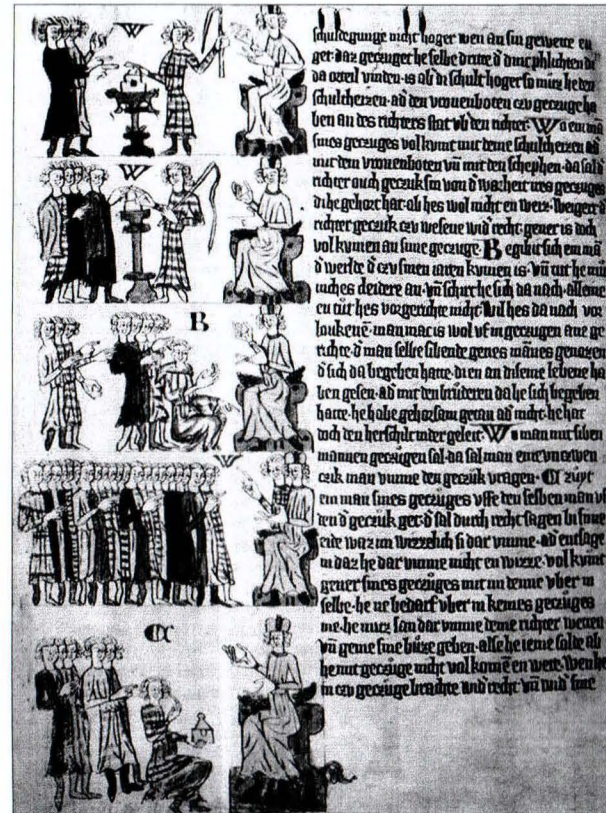 W
B
W
C
schuldegunge nicht hoger wen an sin gewette en
ger. daz geczuger he selbe dritte d' dinc phlichten di
da orteil vinden. is abir di schult hoger so muz he den
schulcheizen. ad' den vronenboten czu geczuge ha
ben an des richters stat vb' den richter. Wo ein mā
sines geczuges vol kvmt mit deme schulcheizen ad'
mit dem vronenboten vn̄ mit den schephen. da sal d'
richter ouch geczuk sin von d' warheit wes geczuges
di he gehort hat. ab hes wol nicht en weiz. Weigert d'
richter geczuk czu wesene wid' recht. gener is doch
vol kvmen an sime geczuge. Begibit sich ein mā
d' werlde d' czu sinen iaren kvmen is. vn̄ tut he mū
niches cleidere an. vn̄ schirt he sich da nach. alleine
en tut hes vor gerichte nicht. Wil hes da nach vor
loukenē. man mac is wol vf in geczugen ane ge
richte. d' man selbe sibende genes mānes genozen
d' sich da begeben hatte. di en an diseme lebene ha
ben gesen. ad' mit den brūderen da he sich begeben
hatte. he habe gehorsam getan ad' nicht. he hat
doch den herschilt nider geleit. Wo man mit siben
mannen geczugen sal. da sal man eine vn̄ czwen
czik man vmme den geczuk vragen. Czuyt
ein man sines geczuges vffe den selben man vf
den d' geczuk get. d' sal durch recht sagen bi sime
eide waz im wizzelich si dar vmme. ad' entsage
in daz he dar vmme nicht en wizze. vol kvmt
gener sines geczuges mit im denne vber in
selbe. he ne bedarf vber in keines geczuges
me. he muz san dar vmme deme richter wetten
vn̄ geme sine buze geben. alse he ieme solde ab
he mit geczuge nicht vol komē en were. Wen he
in czu geczuge brachte wid' recht. vn̄ wid' sine